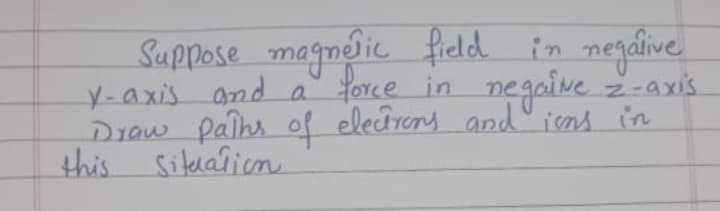 Suppose magnetic field in negative
y-axis and a force in negative z-axis
Draw paths of electrons and ions in
this situation